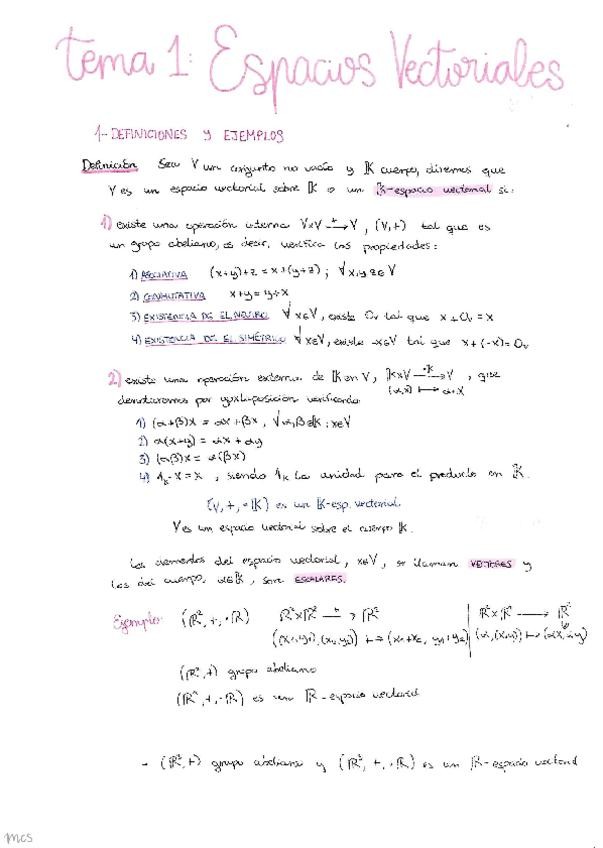 tema 1: Espacios Vectoriales
1- DEFINICIONES y EJEMPLOS
Definición Sea V un conjunto no vacío y 𝕂 cuerpo, diremos que
V es un espacio vectorial sobre 𝕂 o un 𝕂-espacio vectorial si:
1) existe una operación interna VxV →⁺ V, (V,+) tal que es
un grupo abeliano, es decir, verifica las propiedades:
1) ASOCIATIVA (x+y)+z = x+(y+z); ∀x,y,z∈V
2) CONMUTATIVA x+y = y+x
3) EXISTENCIA DE EL NEUTRO ∀x∈V, existe 0ᵥ tal que x+0ᵥ = x
4) EXISTENCIA DE EL SIMÉTRICO ∀x∈V, existe -x∈V tal que x+(-x)=0ᵥ
2) existe una operación externa de 𝕂 en V, 𝕂xV →·𝕂 V, que
(α,x) ↦ α·x
denotaremos por yuxtaposición verificando:
1) (α+β)x = αx+βx, ∀α,β∈𝕂; x∈V
2) α(x+y) = αx+αy
3) (αβ)x = α(βx)
4) 1ₖ·x = x, siendo 1ₖ la unidad para el producto en 𝕂.
(V,+,·𝕂) es un 𝕂-esp. vectorial.
V es un espacio vectorial sobre el cuerpo 𝕂.
Los elementos del espacio vectorial, x∈V, se llaman VECTORES y
los del cuerpo, α∈𝕂, son ESCALARES.
Ejemplo: (ℝ², +, ·ℝ) ℝ²xℝ² →⁺ ℝ² | ℝxℝ² → ℝ²
((x₁,y₁),(x₂,y₂)) ↦ (x₁+x₂, y₁+y₂) | (α,(x,y)) ↦ (αx,αy)
(ℝ²,+) grupo abeliano
(ℝ²,+,·ℝ) es un ℝ-espacio vectorial
- (ℝ³,+) grupo abeliano y (ℝ³,+,·ℝ) es un ℝ-espacio vectorial
mcs